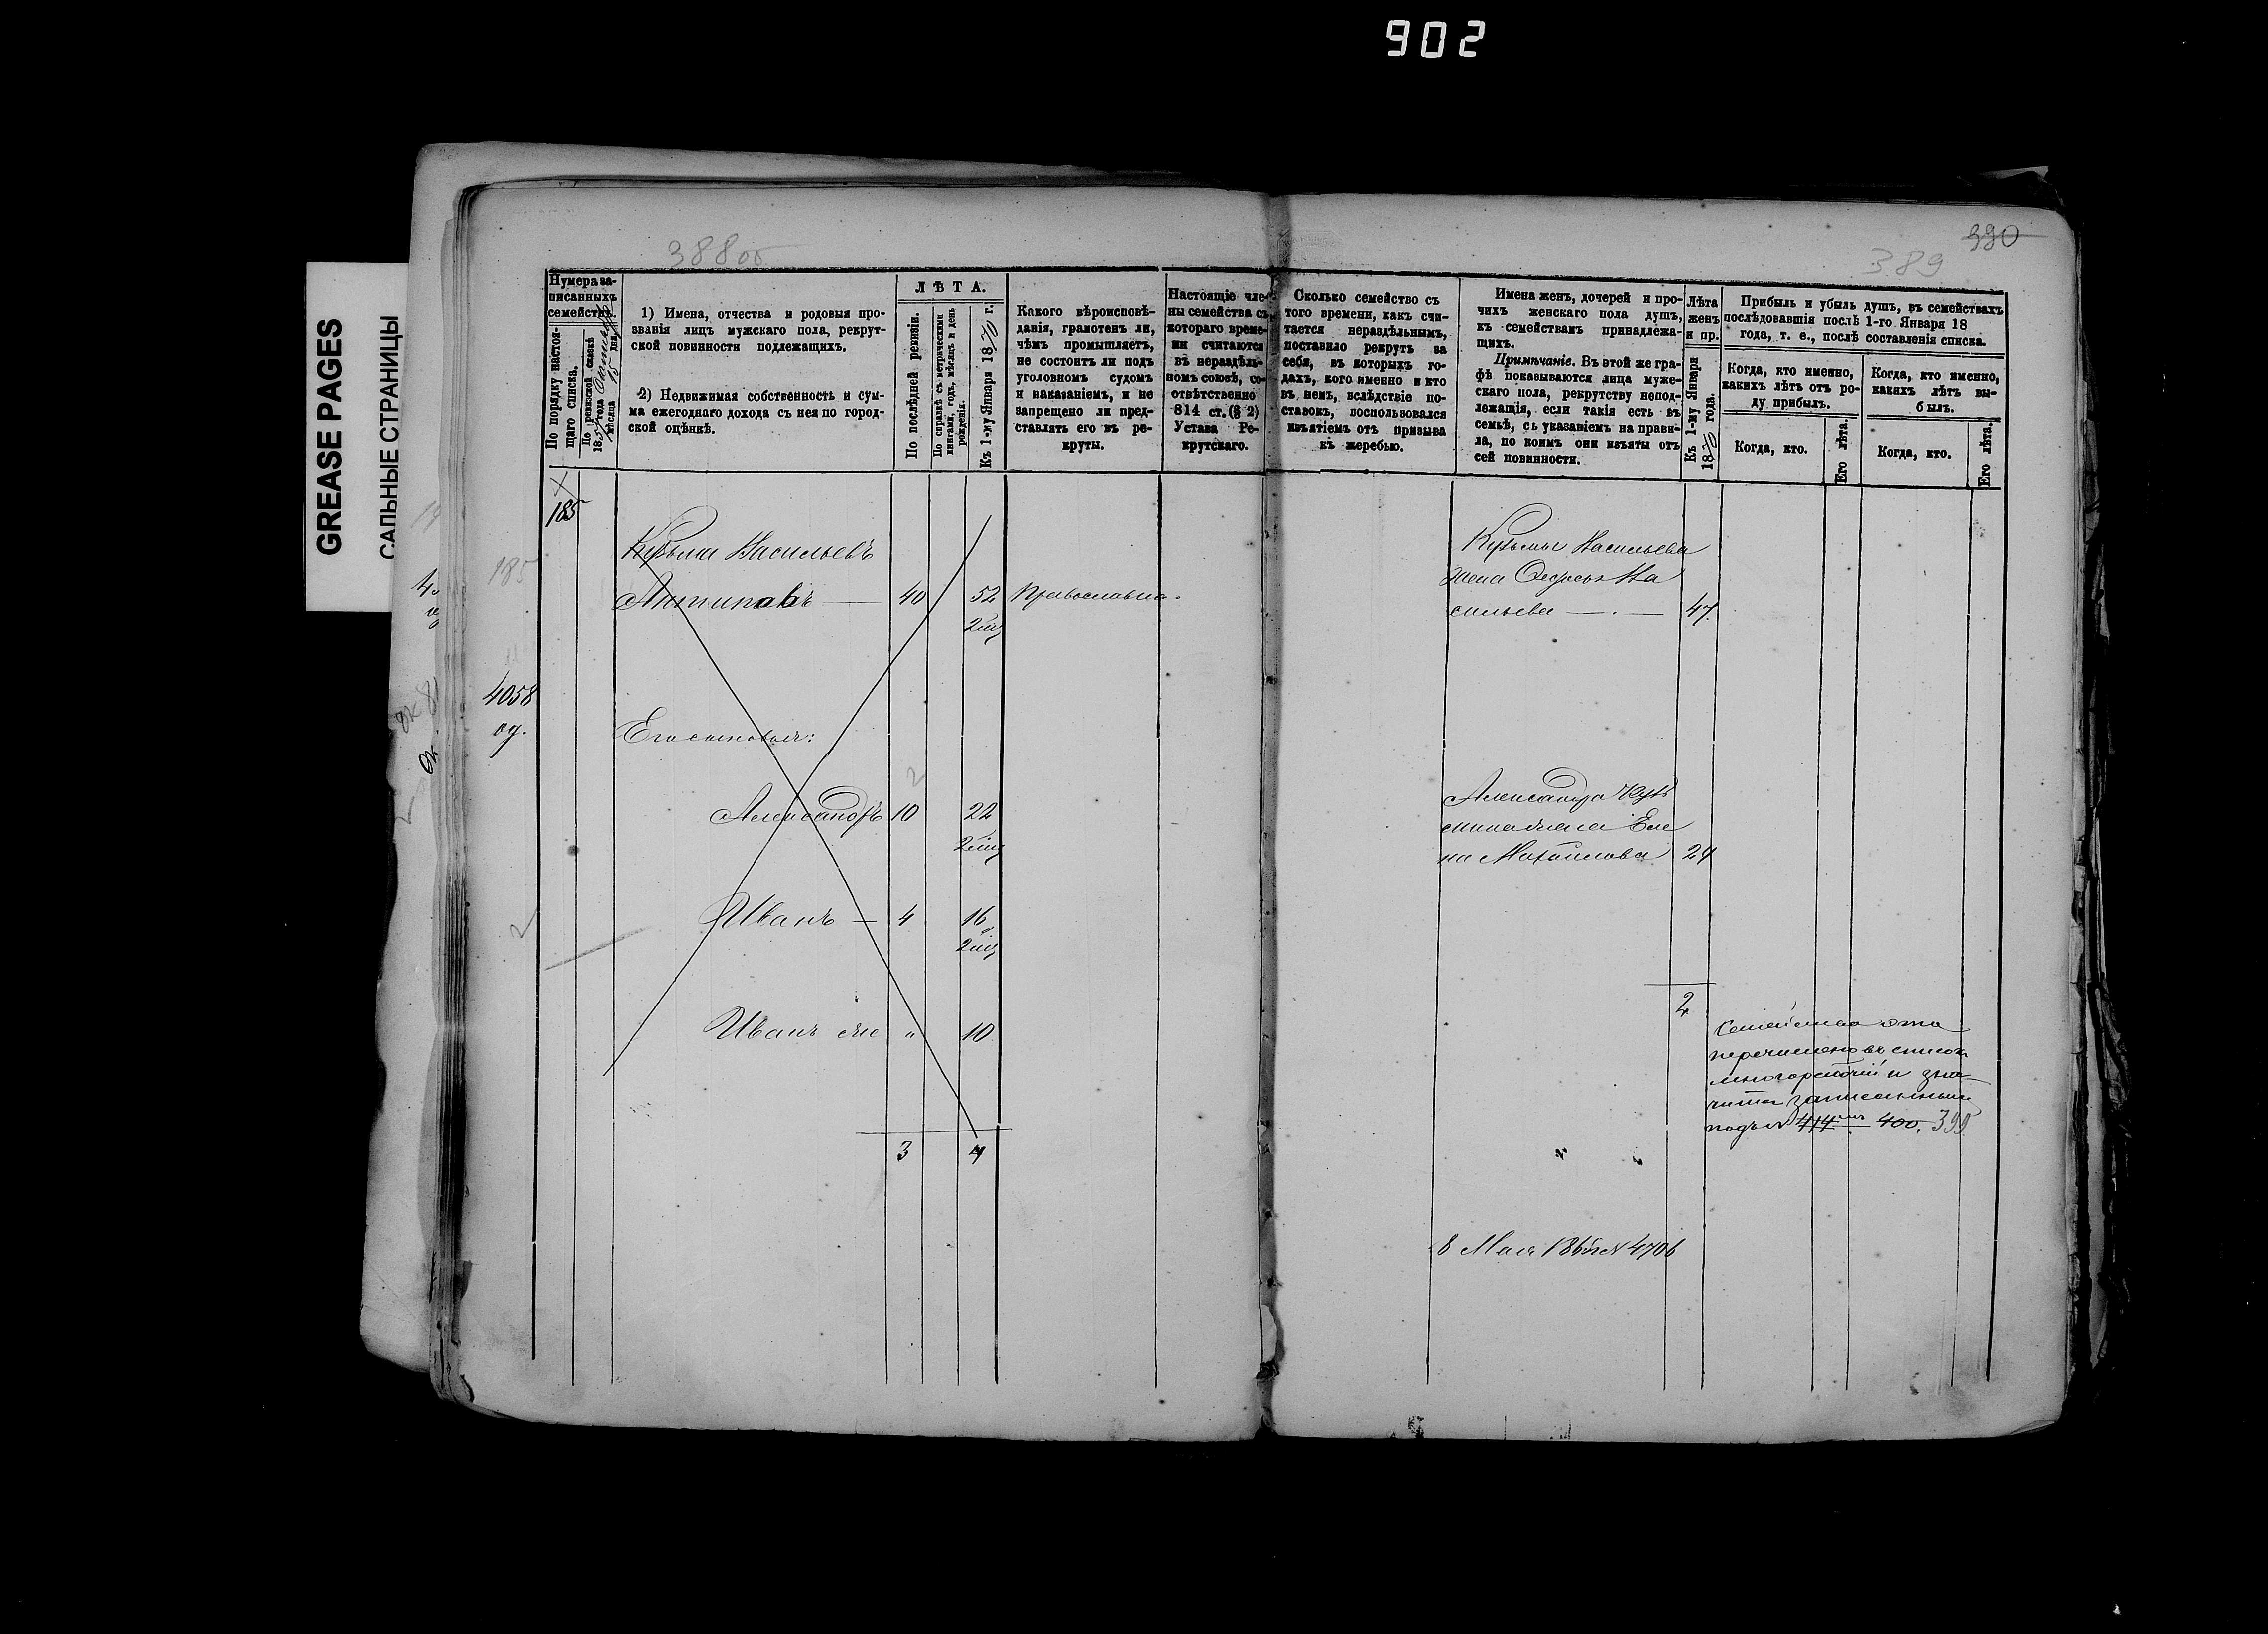 902
GREASE PAGES
САЛЬНЫЕ СТРАНИЦЫ
388об
390
389
Нумера за-
писанныхъ
семействъ.
По порядку настоя-
щаго списка.
По ревизской сказкѣ
18 года
мѣсяца 15 дня
1) Имена, отчества и родовыя про-
званія лицъ мужскаго пола, рекрут-
ской повинности подлежащихъ.
2) Недвижимая собственность и сум-
ма ежегоднаго дохода съ нея по город-
ской оцѣнкѣ.
ЛѢТА.
По послѣдней ревизіи.
По справкѣ съ метрическими
книгами, годъ, мѣсяцъ и день
рожденія.
Къ 1-му Января 1870 г.
Какого вѣроисповѣ-
данія, грамотенъ ли,
чѣмъ промышляетъ,
не состоитъ ли подъ
уголовномъ судомъ
и наказаніемъ, и не
запрещено ли пред-
ставлять его въ ре-
круты.
Настоящіе чле-
ны семейства съ
котораго време-
ни считаются
въ нераздѣль-
номъ союзѣ, со-
отвѣтственно
814 ст. (§ 2)
Устава Ре-
крутскаго.
Сколько семейство съ
того времени, какъ счи-
тается нераздѣльнымъ,
поставило рекрутъ за
себя, въ которыхъ го-
дахъ, кого именно и кто
въ немъ, вслѣдствіе по-
ставокъ, воспользовался
изъятіемъ отъ призыва
къ жеребью.
Имена женъ, дочерей и про-
чихъ женскаго пола душъ,
къ семействамъ принадлежа-
щихъ.
Примѣчаніе. Въ этой же гра-
фѣ показываются лица муже-
скаго пола, рекрутству непод-
лежащія, если такія есть въ
семьѣ, съ указаніемъ на прави-
ла, по коимъ они изъяты отъ
сей повинности.
Лѣта
женъ
и пр.
Къ 1-му Января
1870 года.
Прибыль и убыль душъ, въ семействахъ
послѣдовавшія послѣ 1-го Января 18
года, т. е., послѣ составленія списка.
Когда, кто именно,
какихъ лѣтъ отъ ро-
ду прибылъ.
Когда, кто именно,
какихъ лѣтъ вы-
былъ.
Когда, кто.
Его лѣта.
Когда, кто.
Его лѣта.
185
185
Кузьма Васильевъ
Антиповъ — 40 52 Православна.
4058
од.
Его сыновья:
2
Александръ 10 22
Иванъ — 4 16
Иванъ же " 10
3 4
Кузьмы Васильева
жена Федосья Ва
сильева — 47
Александра Кузь
мина жена Еле
на Михайлова 24
2
Семейство это
перечислено въ списокъ
и зна-
чится записаннымъ
подъ № 414 400. 399
8 Мая № 4706